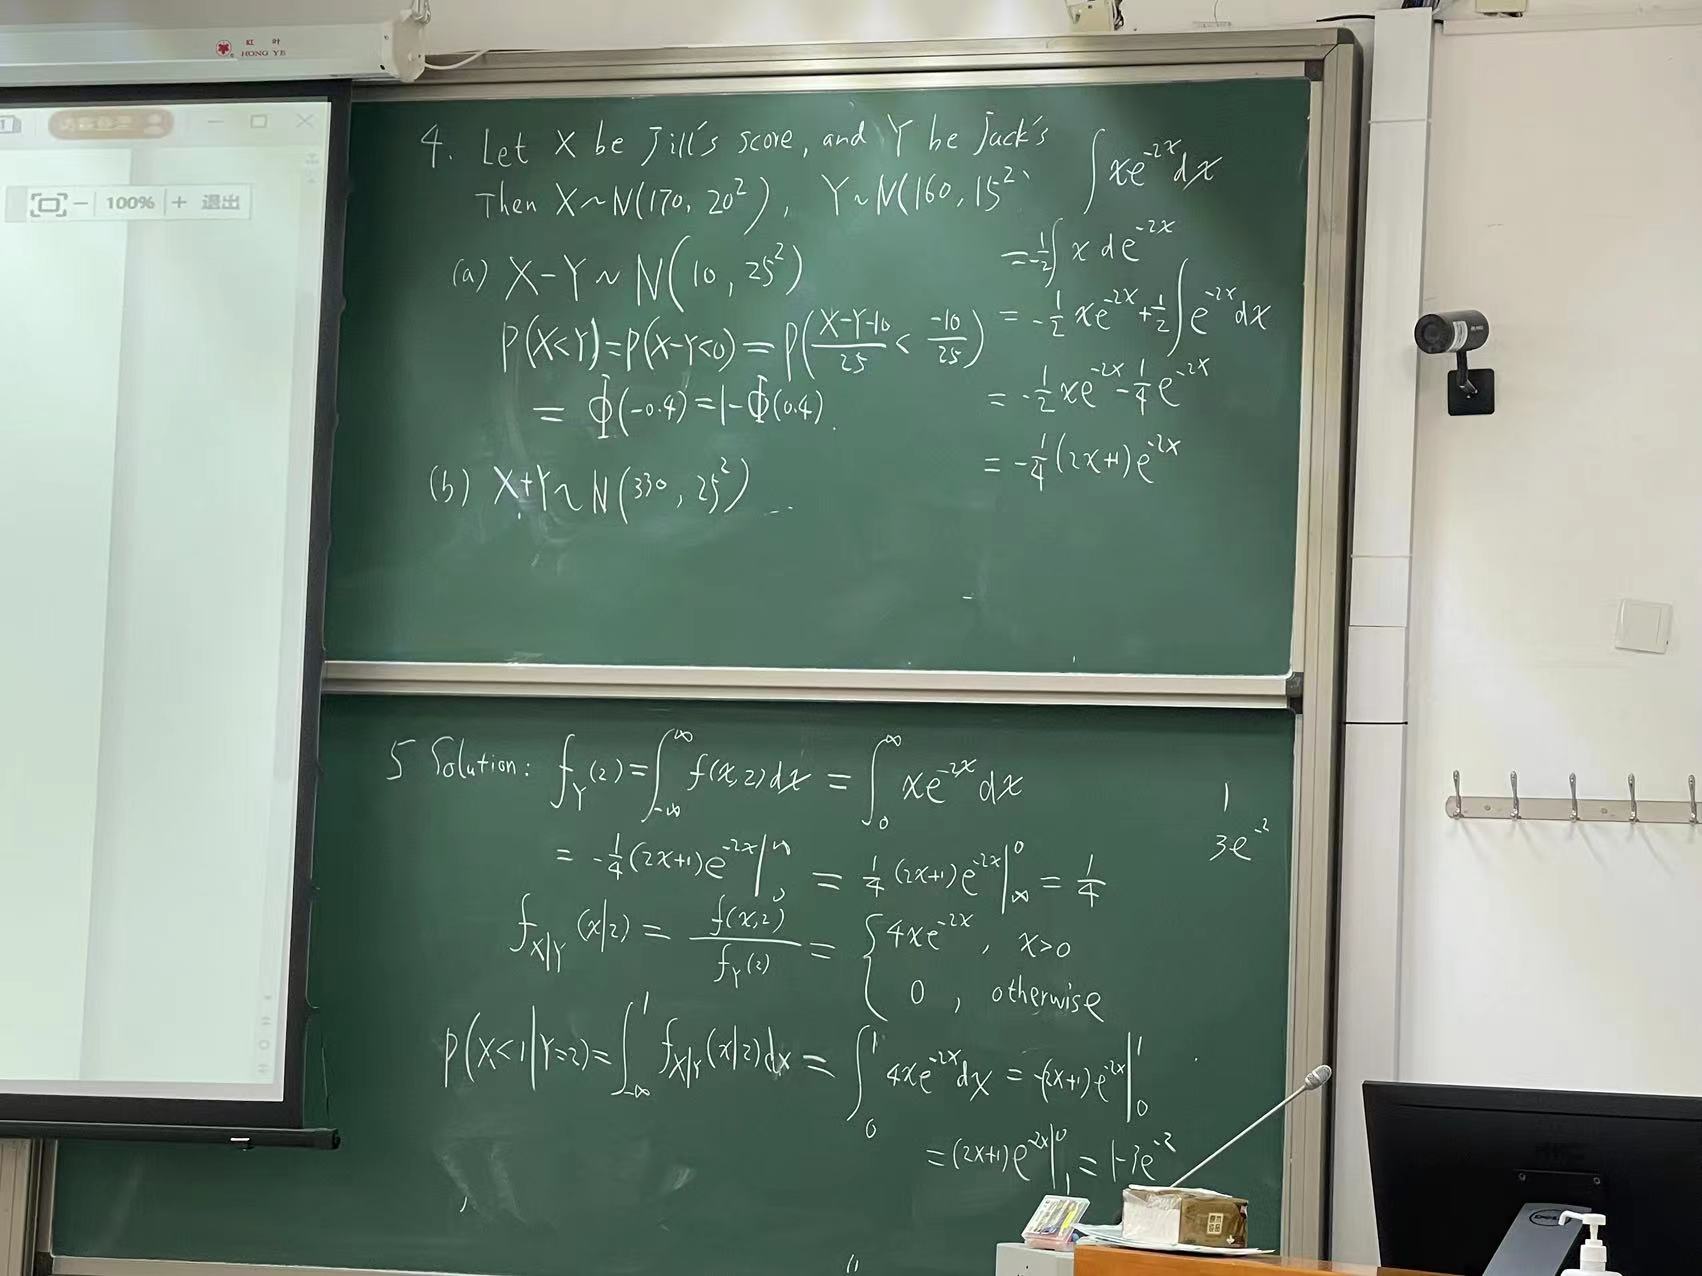 红 叶
HONG YE
1
100% + 退出
4. Let X be Jill's score, and Y be Jack's
Then X~N(170, 20²), Y~N(160, 15²)
(a) X-Y ~ N(10, 25²)
P(X<Y)=P(X-Y<0)=P((X-Y-10)/25 < -10/25)
= Φ(-0.4)=1-Φ(0.4).
(b) X+Y~N(330, 25²) ...
∫xe^{-2x}dx
=-1/2∫x de^{-2x}
= -1/2 xe^{-2x}+1/2∫e^{-2x}dx
= -1/2 xe^{-2x}-1/4 e^{-2x}
= -1/4(2x+1)e^{-2x}
5 Solution: f_Y(2)=∫_{-∞}^{∞} f(x,2)dx = ∫_0^∞ xe^{-2x}dx
= -1/4(2x+1)e^{-2x}|_0^∞ = 1/4(2x+1)e^{-2x}|_∞^0 = 1/4
f_{X|Y}(x|2) = f(x,2)/f_Y(2) = { 4xe^{-2x}, x>0
0, otherwise
P(X<1|Y=2)=∫_{-∞}^1 f_{X|Y}(x|2)dx = ∫_0^1 4xe^{-2x}dx = -(2x+1)e^{-2x}|_0^1
=(2x+1)e^{-2x}|_1^0 = 1-3e^{-2}
1
3e^{-2}
DELL